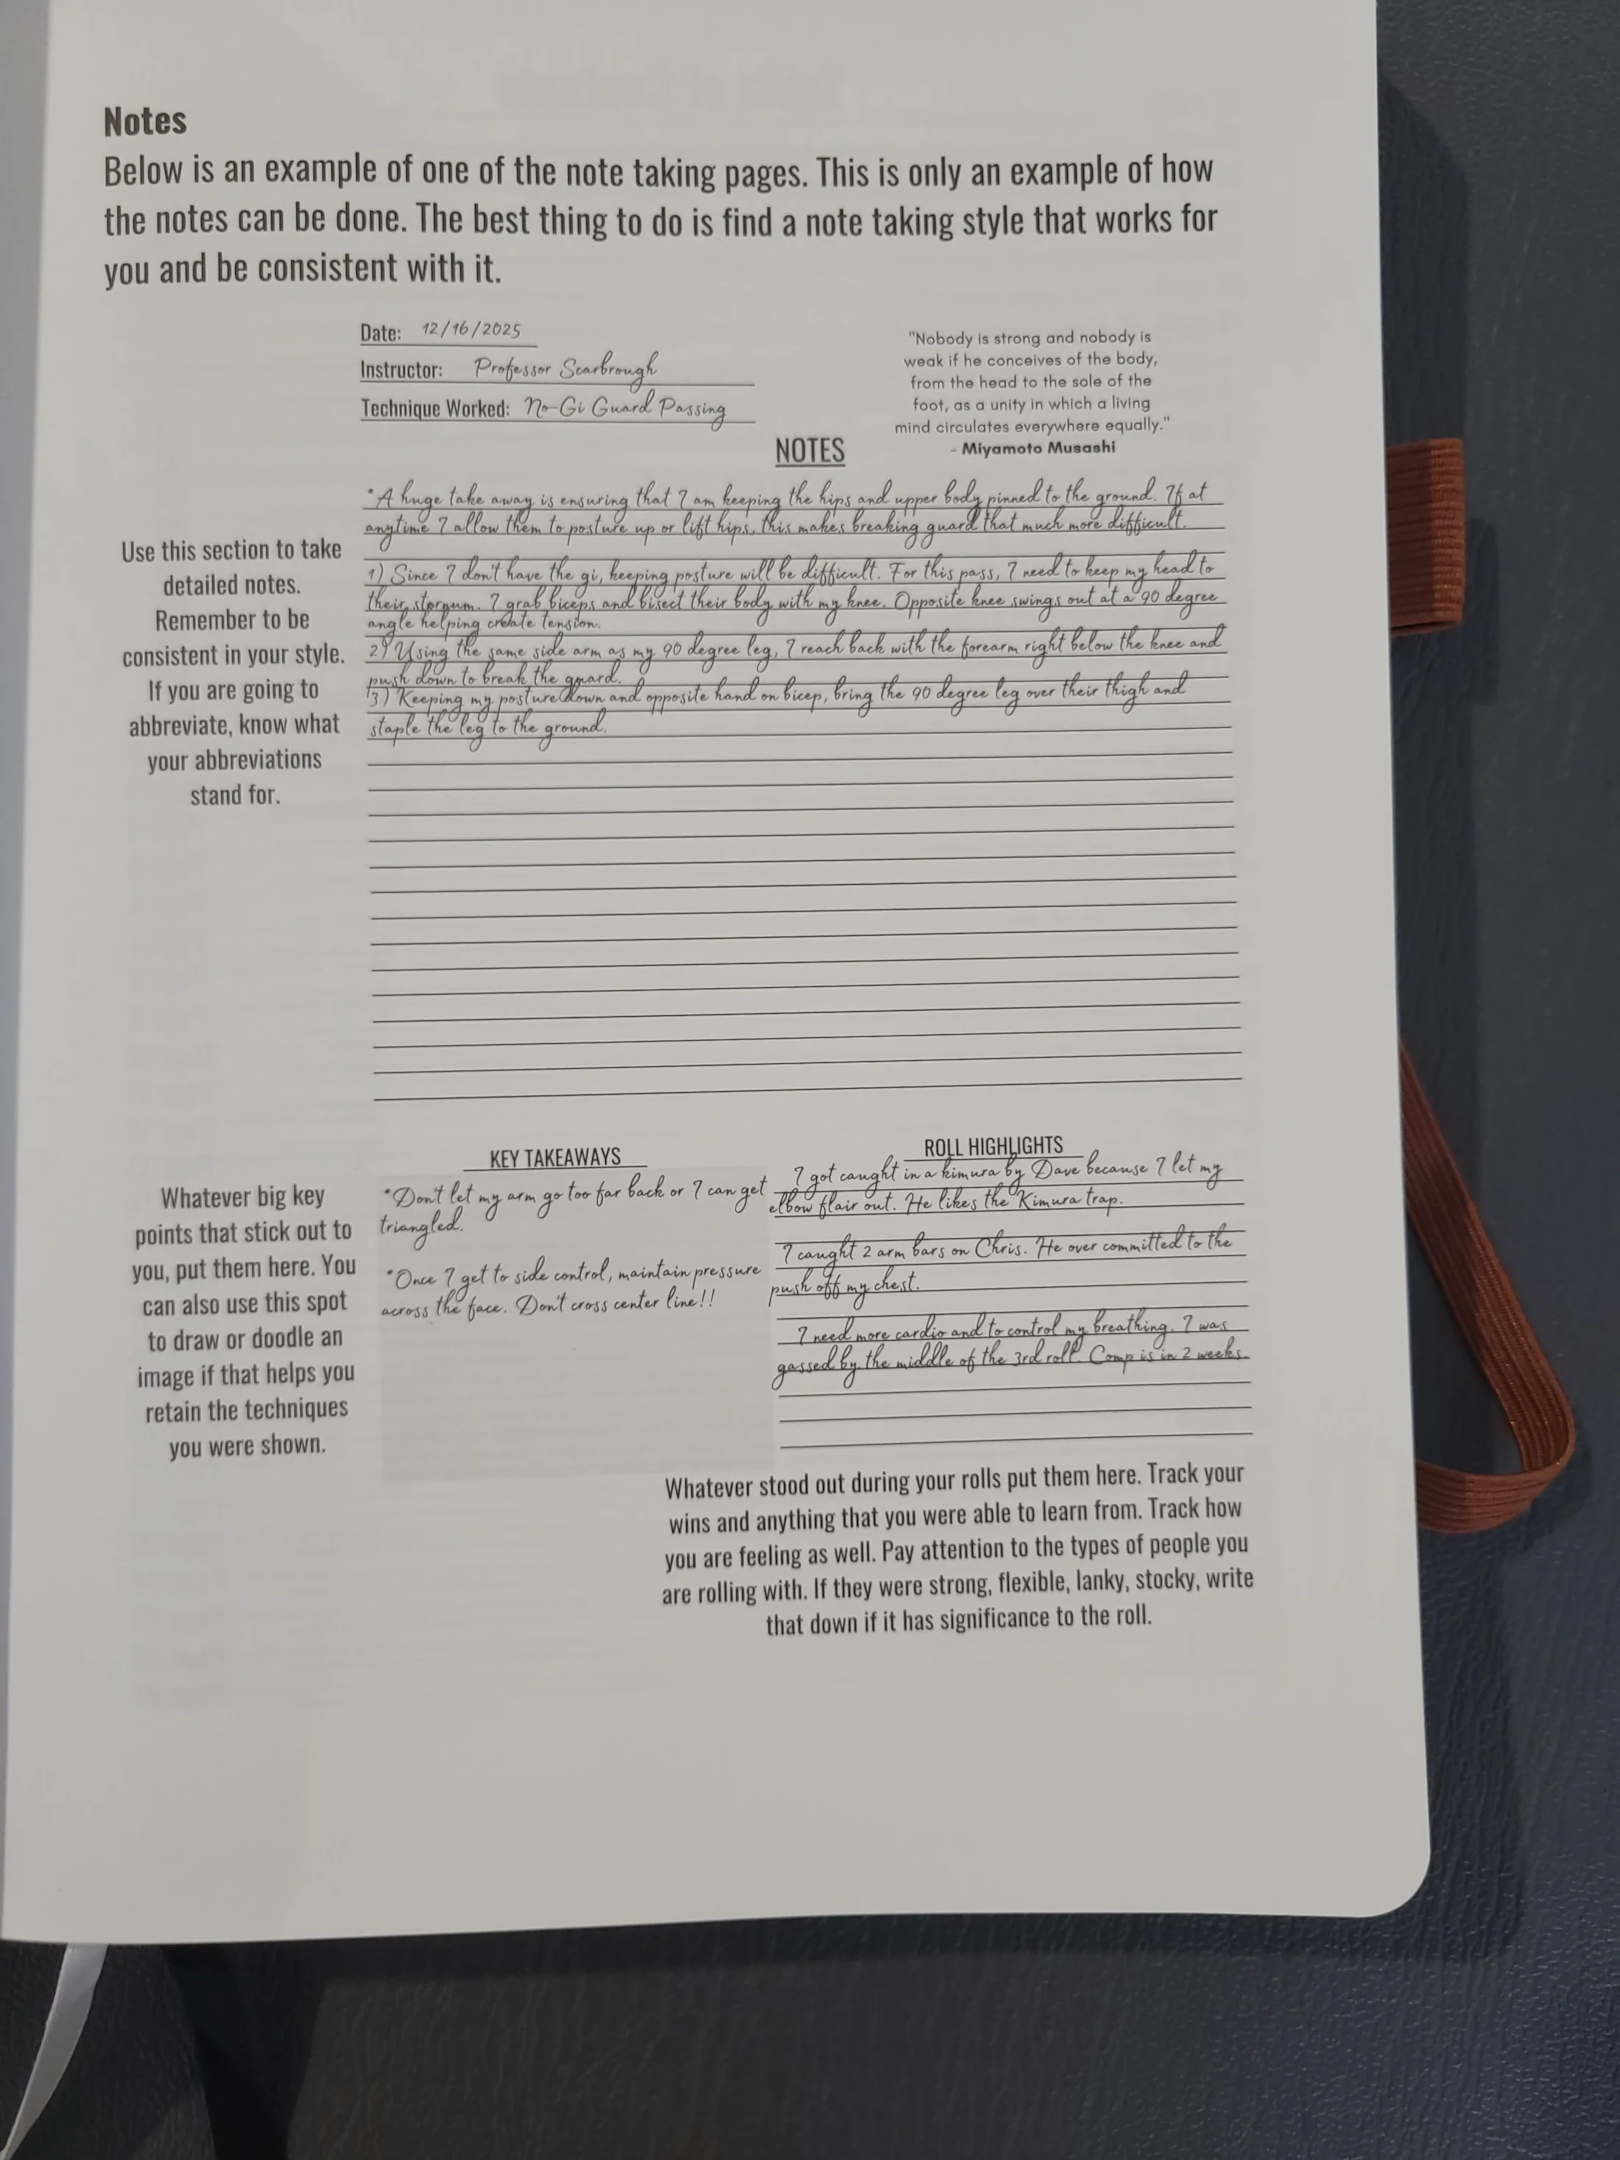 Notes
Below is an example of one of the note taking pages. This is only an example of how
the notes can be done. The best thing to do is find a note taking style that works for
you and be consistent with it.
Date: 12/16/2025
Instructor: Professor Scarbrough
Technique Worked: No-Gi Guard Passing
"Nobody is strong and nobody is
weak if he conceives of the body,
from the head to the sole of the
foot, as a unity in which a living
mind circulates everywhere equally."
- Miyamoto Musashi
NOTES
Use this section to take
detailed notes.
Remember to be
consistent in your style.
If you are going to
abbreviate, know what
your abbreviations
stand for.
*A huge take away is ensuring that I am keeping the hips and upper body pinned to the ground. If at
anytime I allow them to posture up or lift hips, this makes breaking guard that much more difficult.
1) Since I don't have the gi, keeping posture will be difficult. For this pass, I need to keep my head to
their sternum. I grab biceps and bisect their body with my knee. Opposite knee swings out at a 90 degree
angle helping create tension.
2) Using the same side arm as my 90 degree leg, I reach back with the forearm right below the knee and
push down to break the guard.
3) Keeping my posture down and opposite hand on bicep, bring the 90 degree leg over their thigh and
staple the leg to the ground.
Whatever big key
points that stick out to
you, put them here. You
can also use this spot
to draw or doodle an
image if that helps you
retain the techniques
you were shown.
KEY TAKEAWAYS
*Don't let my arm go too far back or I can get
triangled.
*Once I get to side control, maintain pressure
across the face. Don't cross center line!!
ROLL HIGHLIGHTS
I got caught in a kimura by Dave because I let my
elbow flair out. He likes the Kimura trap.
I caught 2 arm bars on Chris. He over committed to the
push off my chest.
I need more cardio and to control my breathing. I was
gassed by the middle of the 3rd roll. Comp is in 2 weeks.
Whatever stood out during your rolls put them here. Track your
wins and anything that you were able to learn from. Track how
you are feeling as well. Pay attention to the types of people you
are rolling with. If they were strong, flexible, lanky, stocky, write
that down if it has significance to the roll.